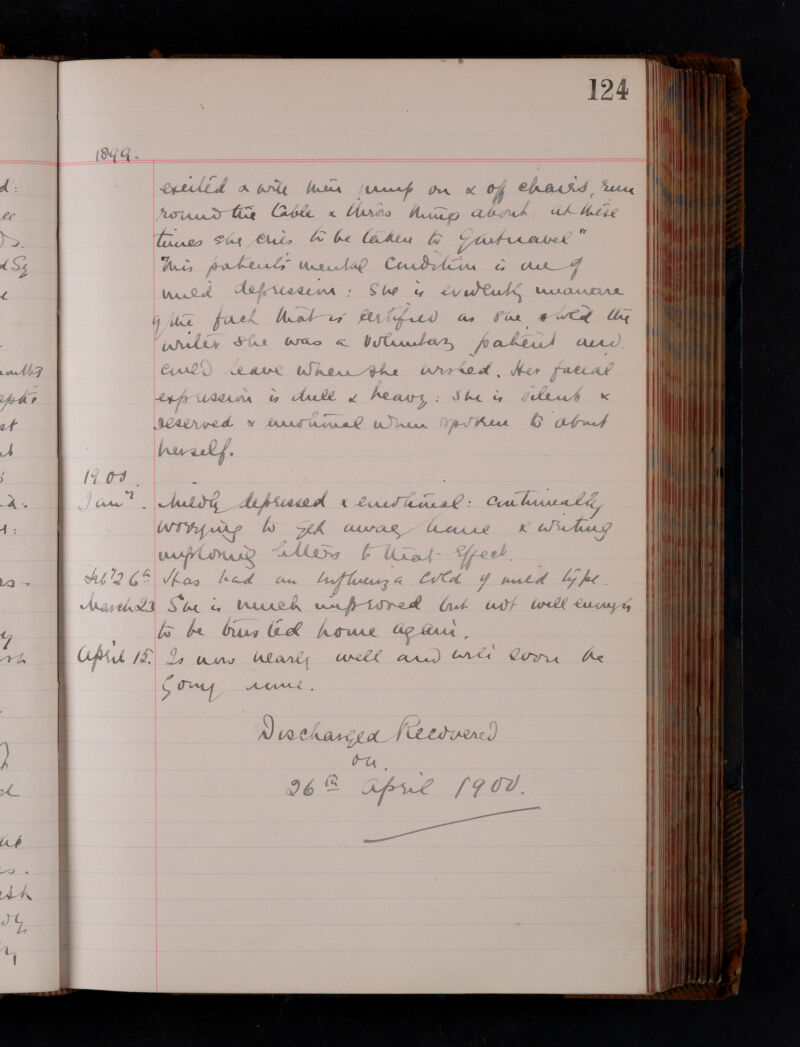 124
1899.
excited & will then jump on & off chairs, run
round the table & throw things about: at these
times she cries to be taken to Gartnavel"
This patient's mental condition is one of
mild depression: She is evidently unaware
of the fact that is certified as she told the
writer she was a voluntary patient and
could leave when she wished. Her facial
expression is dull & heavy: she is silent &
reserved & emotional when spoken to about
herself.
1900.
Jany. Mildly depressed & emotional: continually
worrying to get away home & writing
imploring letters to that effect.
Feby 26th Has had an Influenza cold of mild type.
March 23 She is much improved but not well enough
to be trusted home again.
April 15. Is now nearly well and will soon be
going home.
Discharged Recovered
on.
26th April 1900.